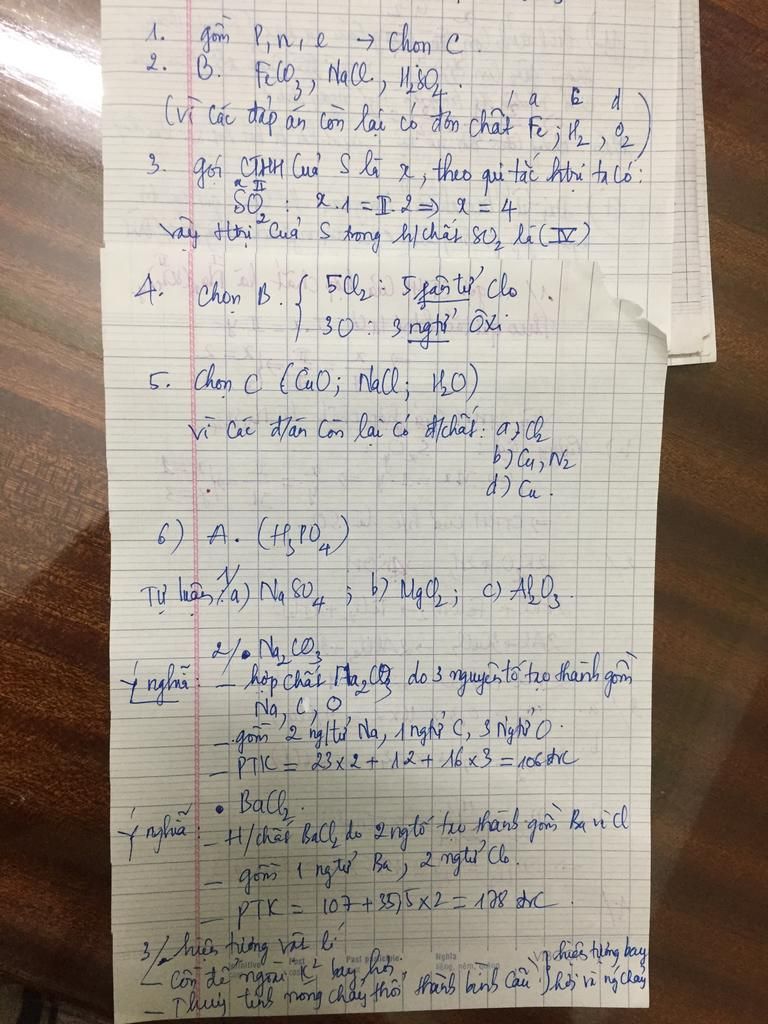 1. gồm p, n, e → Chọn C.
2. B. FeCO3, NaCl, H2SO4.
(vì các đáp án còn lại có đơn chất Fe; H2, O2) a b d
3. gọi CTHH của S là x, theo qui tắc htrị ta có:
x II
SO2 : x.1 = II.2 => x = 4
Vậy Htrị của S trong h/chất SO2 là (IV)
4. Chọn B. { 5Cl2 : 5 phân tử Clo
3O : 3 ngtử Oxi
5. Chọn C (CuO; NaCl; H2O)
vì các đ/án còn lại có đ/chất: a) Cl2
b) Cu, N2
d) Cu.
6) A. (H3PO4)
Tự luận 1/ a) NaSO4 ; b) MgCl2; c) Al2O3.
2/ • Na2CO3
Ý nghĩa: – hợp chất Na2CO3 do 3 nguyên tố tạo thành gồm
Na, C, O
– gồm 2 ng/tử Na, 1 ngtử C, 3 Ngtử O.
– PTK = 23x2 + 12 + 16x3 = 106 đvC
• BaCl2.
Ý nghĩa: – H/chất BaCl2 do 2 ngtố tạo thành gồm Ba và Cl
– gồm 1 ngtử Ba, 2 ngtử Clo.
– PTK = 107 + 35,5 x 2 = 178 đvC.
3/ hiện tượng vật lí
– Cồn để ngoài k2 bay hơi } hiện tượng bay
– Thuỷ tinh nóng chảy thổi thành bình cầu hơi và ng chảy
Past participle Nghĩa